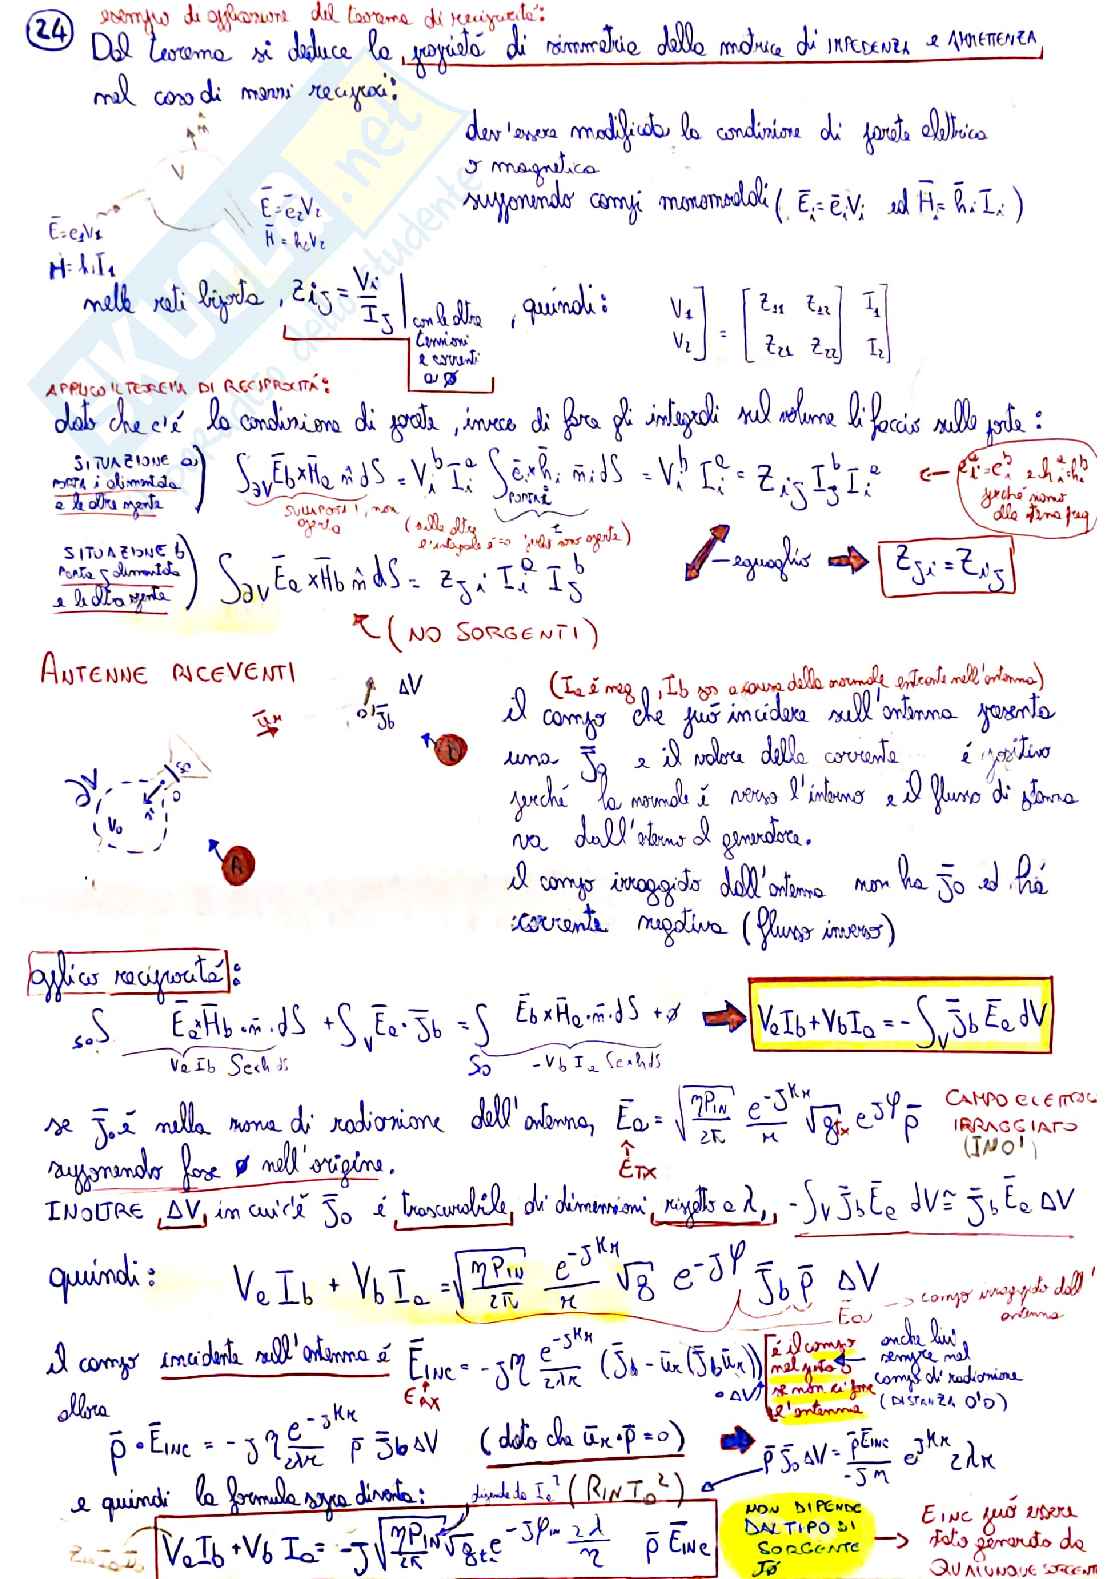 24
esempio di applicazione del teorema di reciprocità:
Dal teorema si deduce la proprietà di simmetria della matrice di IMPEDENZA e AMMETTENZA
nel caso di mezzi reciproci:
dev'essere modificata la condizione di parete elettrica
o magnetica
supponendo campi monomodali ( Ēi = ēiVi ed H̄i = h̄i Īi )
V n̄
Ē=e1V1
H=h1I1
Ē=ē2V2
H̄=h2V2
nelle reti biporta, Zij = Vi/Ij | con le altre tensioni e correnti a ø , quindi: V1 V2 ] = [ Z11 Z12 Z21 Z22 ] I1 I2 ]
APPLICO IL TEOREMA DI RECIPROCITÀ:
dato che c'è la condizione di parete, invece di fare gli integrali sul volume li faccio sulle porte:
SITUAZIONE a)
PORTA i alimentata
e le altre spente
∫∂V Ēb×H̄a n̂ dS = Vi^b Ii^a ∫PORTA i ēi×h̄i n̄i dS = Vi^b Ii^a = Zij Ij^b Ii^a
ei^a=ei^b e hi^a=hi^b
perché sono
alla stessa freq
SITUAZIONE b)
PORTA j alimentata
e le altre spente
∫∂V Ēa×H̄b n̂ dS = Zji Ii^a Ij^b
eguaglio
Zji = Zij
(NO SORGENTI)
ANTENNE RICEVENTI
ūr
ΔV
O' J̄b
B
∂V
V0
n̄
S0
O
A
(Ia è neg, Ib pos a causa della normale entrante nell'antenna)
il campo che può incidere sull'antenna presenta
una J̄0 e il valore della corrente è positivo
perché la normale è verso l'interno e il flusso di potenza
va dall'esterno al generatore.
il campo irraggiato dall'antenna non ha J̄0 ed ha
corrente negativa (flusso inverso)
applico reciprocità:
S0∫ Ēa×H̄b·n̄·dS + ∫V Ēa·J̄b = ∫S0 Ēb×H̄a·n̄·dS + ø
VaIb ∫exh ds
-VbIa ∫exh ds
VaIb + VbIa = - ∫V J̄b Ēa dV
se J̄0 è nella zona di radiazione dell'antenna, Ēa = √(ηPIN/2π) e^-jKr/r √gtx e^jφ p̄
CAMPO ELETTRIC
IRRAGGIATO
(IN O')
supponendo fase ø nell'origine.
ETX
INOLTRE ΔV, in cui c'è J̄0 è trascurabile di dimensioni rispetto a λ, -∫V J̄b Ēa dV ≅ J̄b Ēa ΔV
quindi: VaIb + VbIa = √(ηPIN/2π) e^-jKr/r √g e^-jφ J̄b p̄ ΔV
Ēa → campo irraggiato dall'
antenna
il campo incidente sull'antenna è ĒINC = -jη e^-jKr/2λr (J̄b - ūr(J̄b ūr)) · ΔV
ERX
è il campo
nel punto O
se non ci fosse
l'antenna
anche lui
sempre nel
campo di radiazione
(DISTANZA O'O)
allora
p̄ · ĒINC = -jη e^-jKr/2λr p̄ J̄b ΔV (dato che ūr·p̄ = 0) p̄ J̄0 ΔV = p̄ĒINC/-jη e^jKr 2λr
e quindi la formula sopra diventa: dipende da Ia² (RIN Ia²)
VaIb + VbIa = -j √(ηPIN/2π) √gt e^-jφ 2λ/η p̄ ĒINC
NON DIPENDE
DAL TIPO DI
SORGENTE
J̄0
EINC può essere
stato generato da
QUALUNQUE SORGENTE